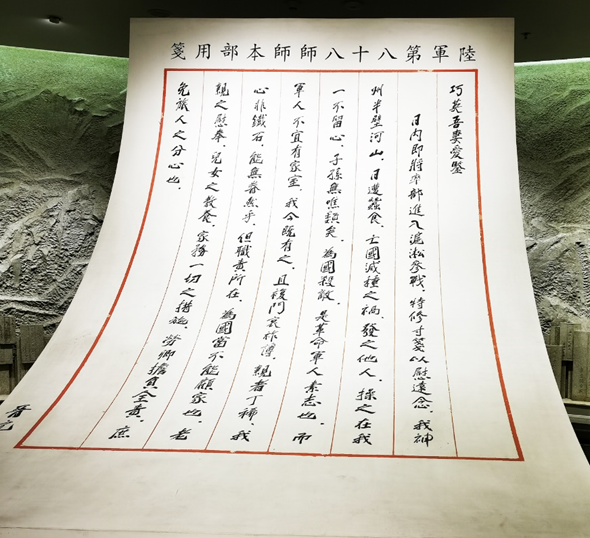 陸軍第八十八師師本部用箋
巧英吾妻愛鑒
日內即將率部進入滬淞參戰、特修寸箋以慰遠念、我神
州半壁河山、日遭蠶食、亡國滅種之禍、發之他人、操之在我
一不留心、子孫無噍類矣、為國殺敵、是革命軍人素志也、而
軍人不宜有家室、我今既有之、且復門衰祚薄、親者丁稀、我
心非鐵石、能無眷然乎、但職責所在、為國當不能顧家也、老
親之慰奉、兒女之教養、家務一切之措施、勞卿擔負全責、庶
免旅人之分心也、